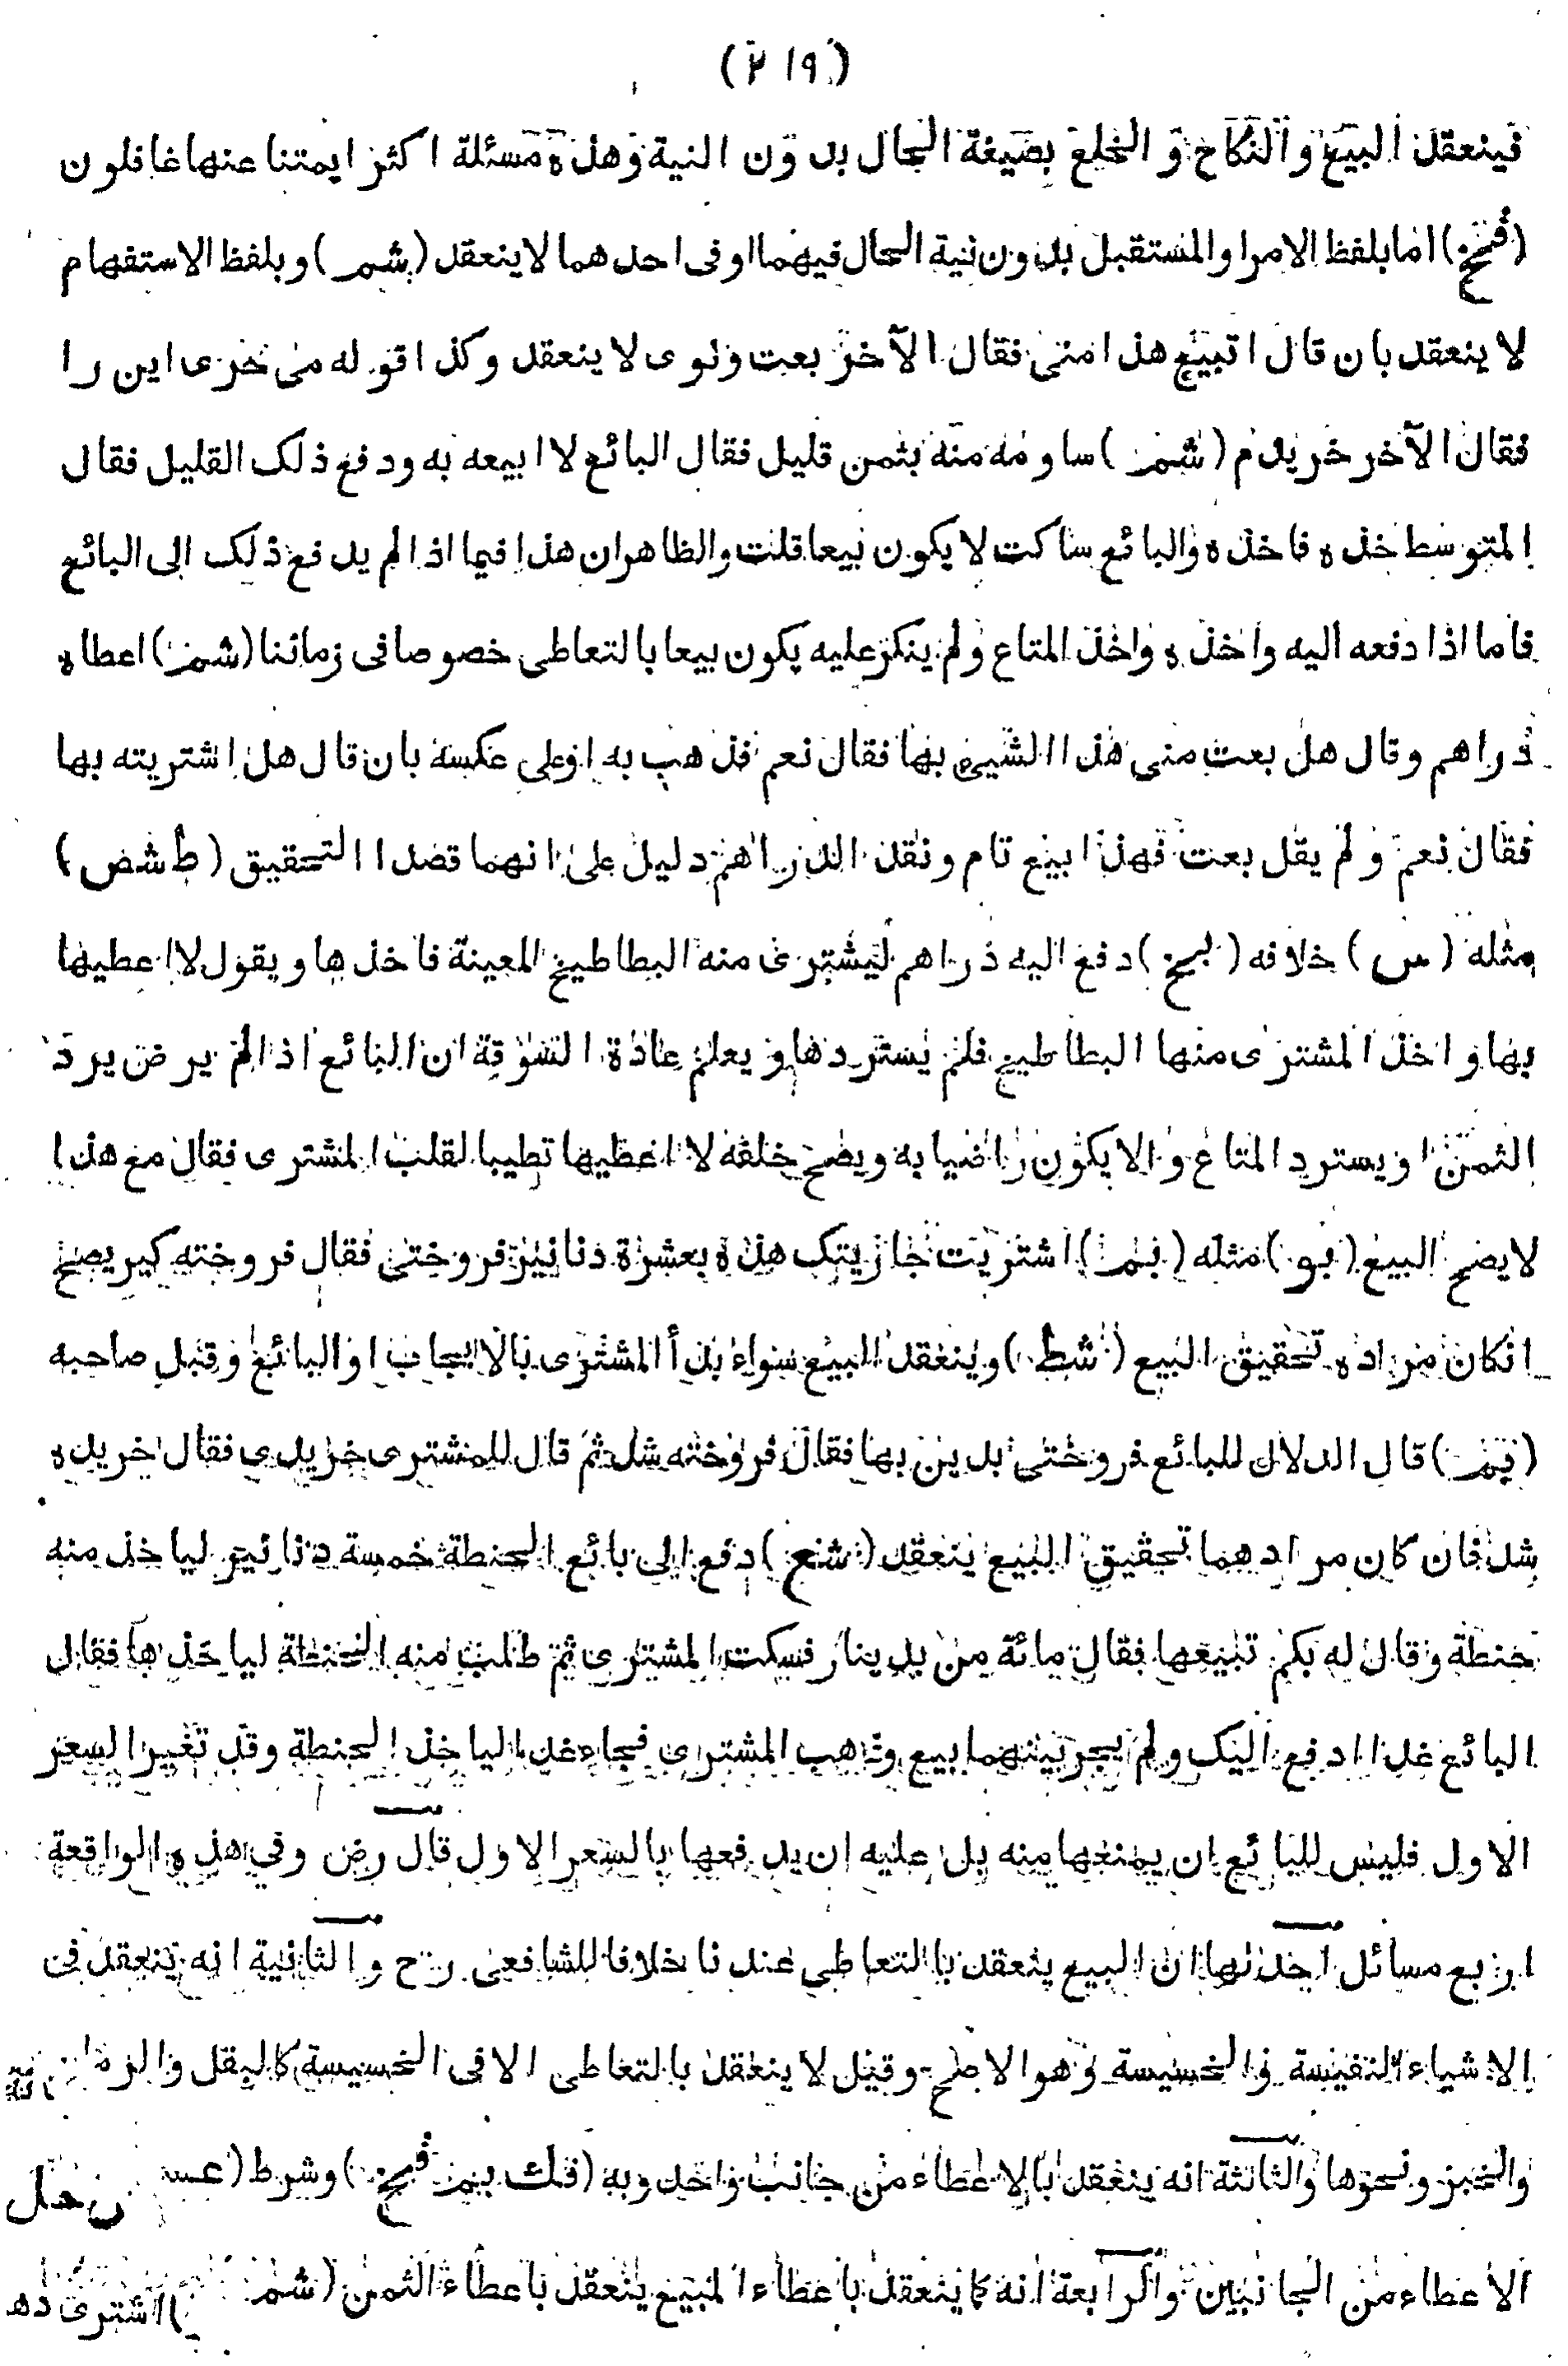 (۲۱۹)
فينعقد البيع والنكاح و الخلع بصيغة الحال بدون النية وهذه مسئلة اكثر ايمتنا عنها غافلون
(فمخ) اما بلفظ الامر او المستقبل بدون نية الحال فيهما او فى احدهما لا ينعقد (بشمر) و بلفظ الاستفهام
لا ينعقد بان قال اتبيع هذا منى فقال الآخر بعت ونوى لا ينعقد وكذا قوله مى خرى اين را
فقال الآخر خريدم (شمز) ساومه منه بثمن قليل فقال البائع لا ابيعه به ودفع ذلك القليل فقال
المتوسط خذه فاخذه والبائع ساكت لا يكون بيعا قلت والظاهر ان هذا فيما اذا لم يدفع ذلك الى البائع
فاما اذا دفعه اليه واخذه واخذ المتاع ولم ينكر عليه يكون بيعا بالتعاطى خصوصا فى زماننا (شمز) اعطاه
دراهم وقال هل بعت منى هذا الشيئ بها فقال نعم فذهب به او على عكسه بان قال هل اشتريته بها
فقال نعم و لم يقل بعت فهذا بيع تام ونقد الدراهم دليل على انهما قصدا التحقيق (ط شض)
مثله (س) خلافه (بمخ) دفع اليه دراهم ليشترى منه البطاطيخ المعينة فاخذها ويقول لا اعطيها
بها واخذ المشترى منها البطاطيخ فلم يستردها و يعلم عادة السوقة ان البائع اذا لم يرض يرد
الثمن او يسترد المتاع والا يكون راضيا به ويصح خلفه لا اعطيها تطيبا لقلب المشترى فقال مع هذا
لا يصح البيع (بو) مثله (بمز) اشتريت جاريتك هذه بعشرة دنانير فروختى فقال فروخته كير يصح
انكان مراده تحقيق البيع (شط) وينعقد البيع سواء بدأ المشترى بالايجاب او البائع وقبل صاحبه
(يمز) قال الدلال للبائع فروختى بدين بها فقال فروخته شد ثم قال للمشترى خريدى فقال خريده
شد فان كان مرادهما تحقيق البيع ينعقد (شنع) دفع الى بائع الحنطة خمسة دنانير لياخذ منه
حنطة وقال له بكم تبيعها فقال مائة من بدينار فسكت المشترى ثم طلب منه الحنطة لياخذها فقال
البائع غدا ادفع اليك ولم يجر بينهما بيع وذهب المشترى فجاء غدا لياخذ الحنطة وقد تغير السعر
الاول فليس للبائع ان يمنعها منه بل عليه ان يدفعها بالسعر الاول قال رض وفى هذه الواقعة
اربع مسائل احدلها ان البيع ينعقد بالتعاطى عندنا خلافا للشافعى رح والثانية انه ينعقد فى
الاشياء النفيسة والخسيسة وهو الاصح وقيل لا ينعقد بالتعاطى الا فى الخسيسة كالبقل والرمانة
والخبز ونحوها والثالثة انه ينعقد بالاعطاء من جانب واحد وبه (فك بيمز فمخ) وشرط (عسـ
الاعطاء من الجانبين والرابعة انه كما ينعقد باعطاء المبيع ينعقد باعطاء الثمن (شمز) اشترى